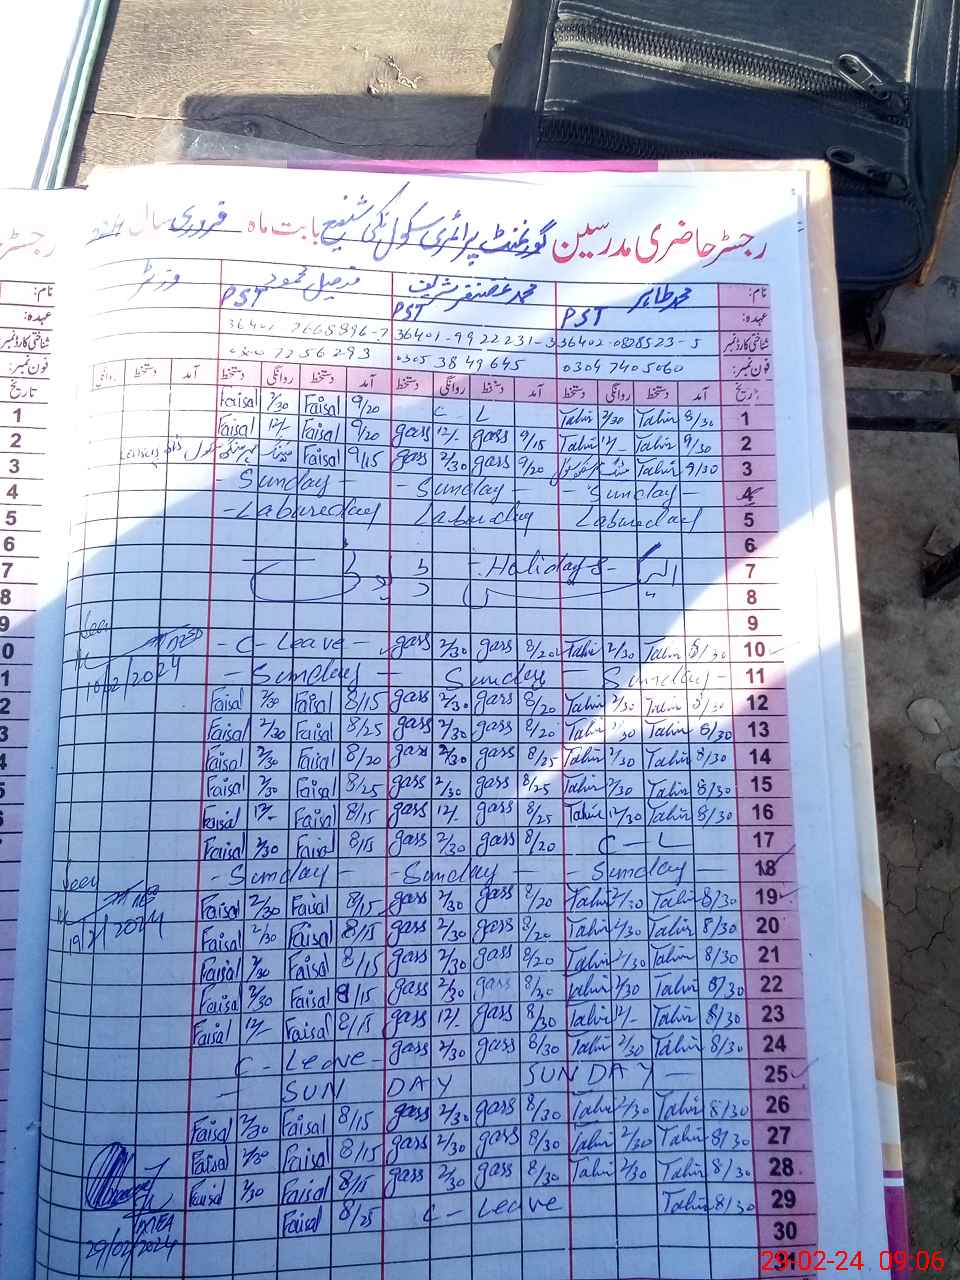 رجسٹر حاضری مدرسین گورنمنٹ پرائمری سکول شفیع بابت ماہ فروری سال
نام: محمد طاہر محمد غضنفر شریف فیصل محمود وزٹ
عہدہ: PST PST PST
شناختی کارڈ نمبر 36402-0828523-5 36401-9922231-3 36401-7668896-7
فون نمبر: 0304 7405060 0305 3849645 0300 7256293
تاریخ آمد دستخط روانگی دستخط آمد دستخط روانگی دستخط آمد دستخط روانگی دستخط آمد دستخط روانگی
1 8/30 Tahir 2/30 Tahir C L 9/20 Faisal 2/30 Faisal
2 9/30 Tahir 12/- Tahir 9/15 gass 12/- gass 9/20 Faisal 12/- Faisal
3 9/30 Tahir 9/20 gass 2/30 gass 9/15 Faisal میٹنگ
4 - Sunday - - Sunday - - Sunday -
5 Labureday Laburday - Labureday
6
7 - Holiday 8 -
8
9
10 8/30 Tahir 2/30 Tahir 8/20 gass 2/30 gass - C - Leave - 10/2/2024
11 - Sunday - Sunday - Sunday -
12 8/30 Tahir 2/30 Tahir 8/20 gass 2/30 gass 8/15 Faisal 2/30 Faisal
13 8/30 Tahir 2/30 Tahir 8/20 gass 2/30 gass 8/25 Faisal 2/30 Faisal
14 8/30 Tahir 2/30 Tahir 8/25 gass 2/30 gass 8/20 Faisal 2/30 Faisal
15 8/30 Tahir 2/30 Tahir 8/25 gass 2/30 gass 8/25 Faisal 2/30 Faisal
16 8/30 Tahir 12/30 Tahir 8/25 gass 12/- gass 8/15 Faisal 12/- Faisal
17 C - L 8/20 gass 2/30 gass 8/15 Faisal 2/30 Faisal
18 Sunday - - Sunday - - Sunday -
19 8/30 Tahir 2/30 Tahir 8/20 gass 2/30 gass 8/15 Faisal 2/30 Faisal 19/2/2024
20 8/30 Tahir 2/30 Tahir 8/20 gass 2/30 gass 8/15 Faisal 2/30 Faisal
21 8/30 Tahir 2/30 Tahir 8/20 gass 2/30 gass 8/15 Faisal 2/30 Faisal
22 8/30 Tahir 2/30 Tahir 8/30 gass 2/30 gass 8/15 Faisal 2/30 Faisal
23 8/30 Tahir 12/- Tahir 8/30 gass 12/- gass 8/15 Faisal 12/- Faisal
24 8/30 Tahir 2/30 Tahir 8/30 gass 2/30 gass C - Leave -
25 - SUN DAY SUNDAY -
26 8/30 Tahir 2/30 Tahir 8/30 gass 2/30 gass 8/15 Faisal 2/30 Faisal
27 8/30 Tahir 2/30 Tahir 8/30 gass 2/30 gass 8/15 Faisal 2/30 Faisal
28 8/30 Tahir 2/30 Tahir 8/30 gass 2/30 gass 8/15 Faisal 2/30 Faisal
29 8/30 Tahir C - Leave 8/25 Faisal 29/02/2024
30
29-02-24 09:06